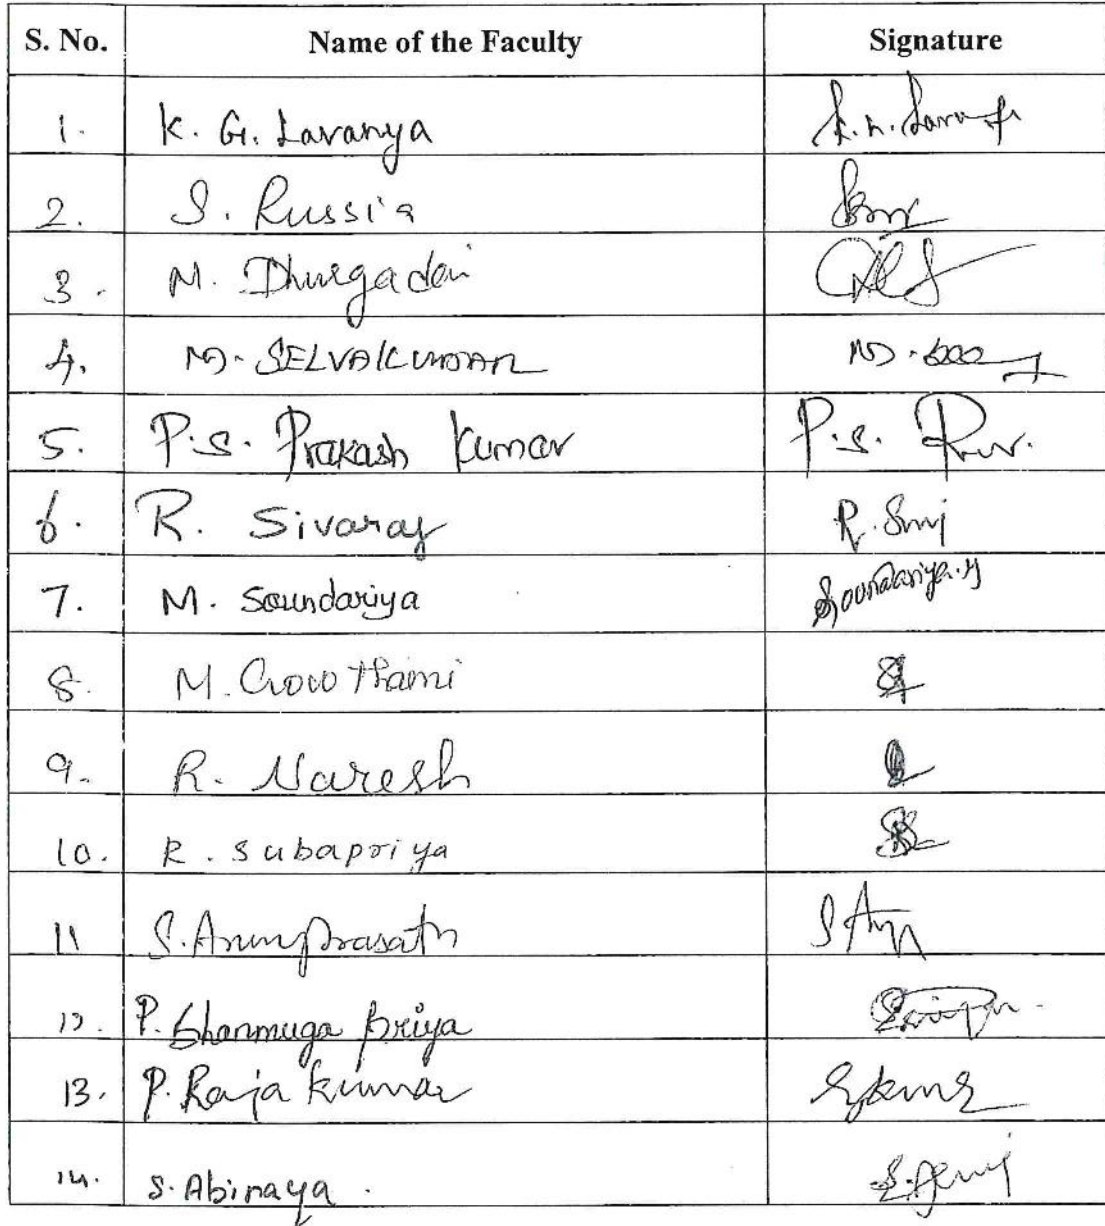 S. No. Name of the Faculty Signature
1. K. G. Lavanya
2. S. Russia
3. M. Dhurgadevi
4. M. SELVAKUMAR
5. P.S. Prakash Kumar P.S.
6. R. Sivaraj R.
7. M. Soundariya Soundariya.M
8. M. Gowthami
9. R. Naresh
10. R. Subapriya
11 S. Arunprasath
12. P. Shanmuga priya
13. P. Raja kumar
14. S. Abinaya.